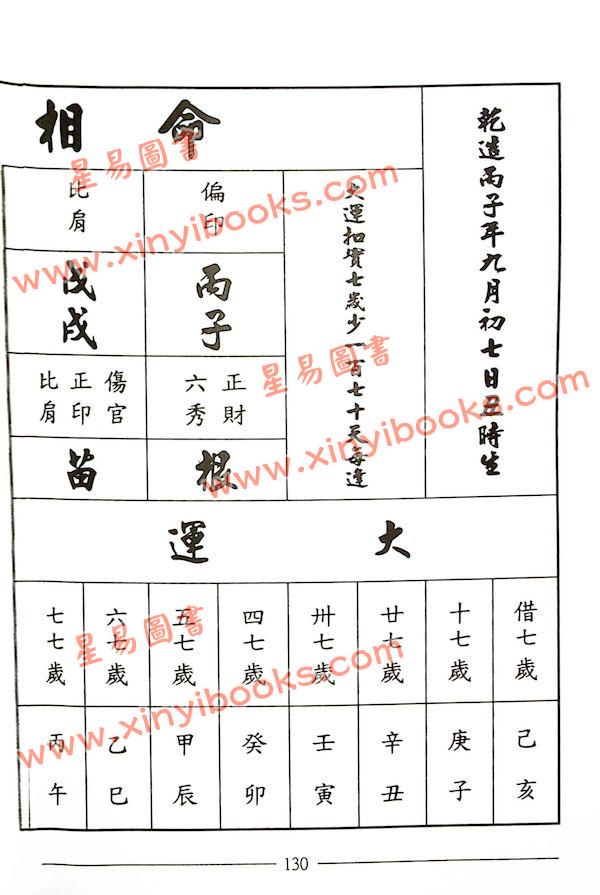 乾造丙子年九月初七日丑時生
大運扣實七歲少一百七十天每逢
命相
偏印
丙子
正財
六秀
根
比肩
戊戌
傷官
正印
比肩
苗
大運
借七歲
己亥
十七歲
庚子
廿七歲
辛丑
卅七歲
壬寅
四七歲
癸卯
五七歲
甲辰
六七歲
乙巳
七七歲
丙午
130
星易圖書
www.xinyibooks.com
星易圖書
www.xinyibooks.com
星易圖書
www.xinyibooks.com